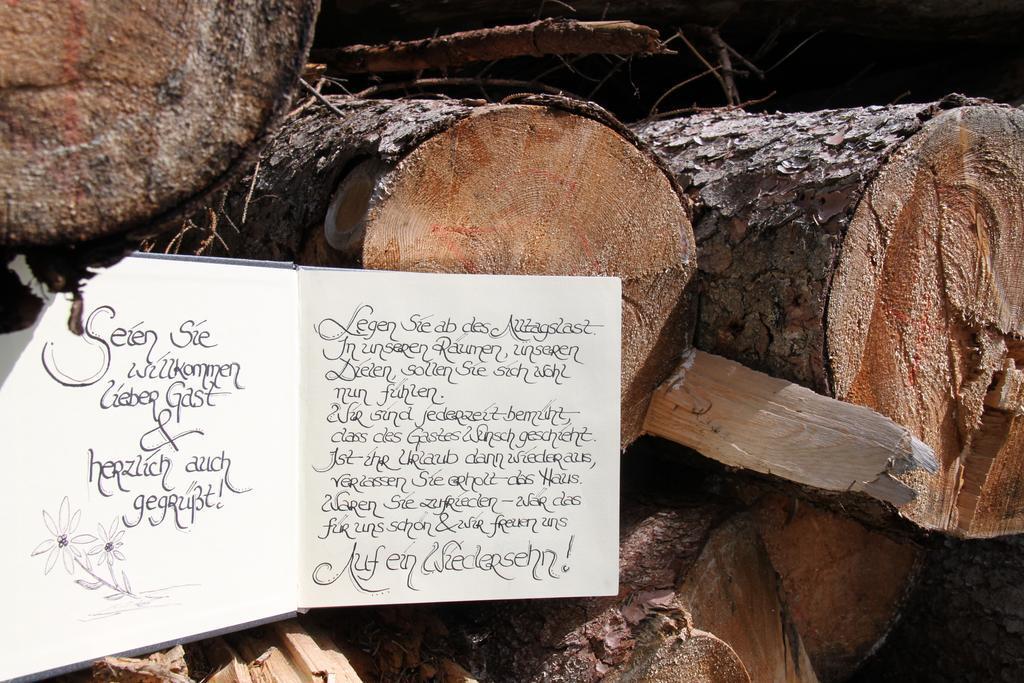 Seien Sie
willkommen
lieber Gast
&
herzlich auch
gegrüßt!
Legen Sie ab des Alltagslast.
In unseren Räumen, unseren
Dielen, sollen Sie sich wohl
nun fühlen.
Wir sind jederzeit bemüht,
dass des Gastes Wunsch geschieht.
Ist ihr Urlaub dann wieder aus,
verlassen Sie erholt das Haus.
Waren Sie zufrieden – war das
für uns schön & wir freuen uns
Auf ein Wiedersehn!